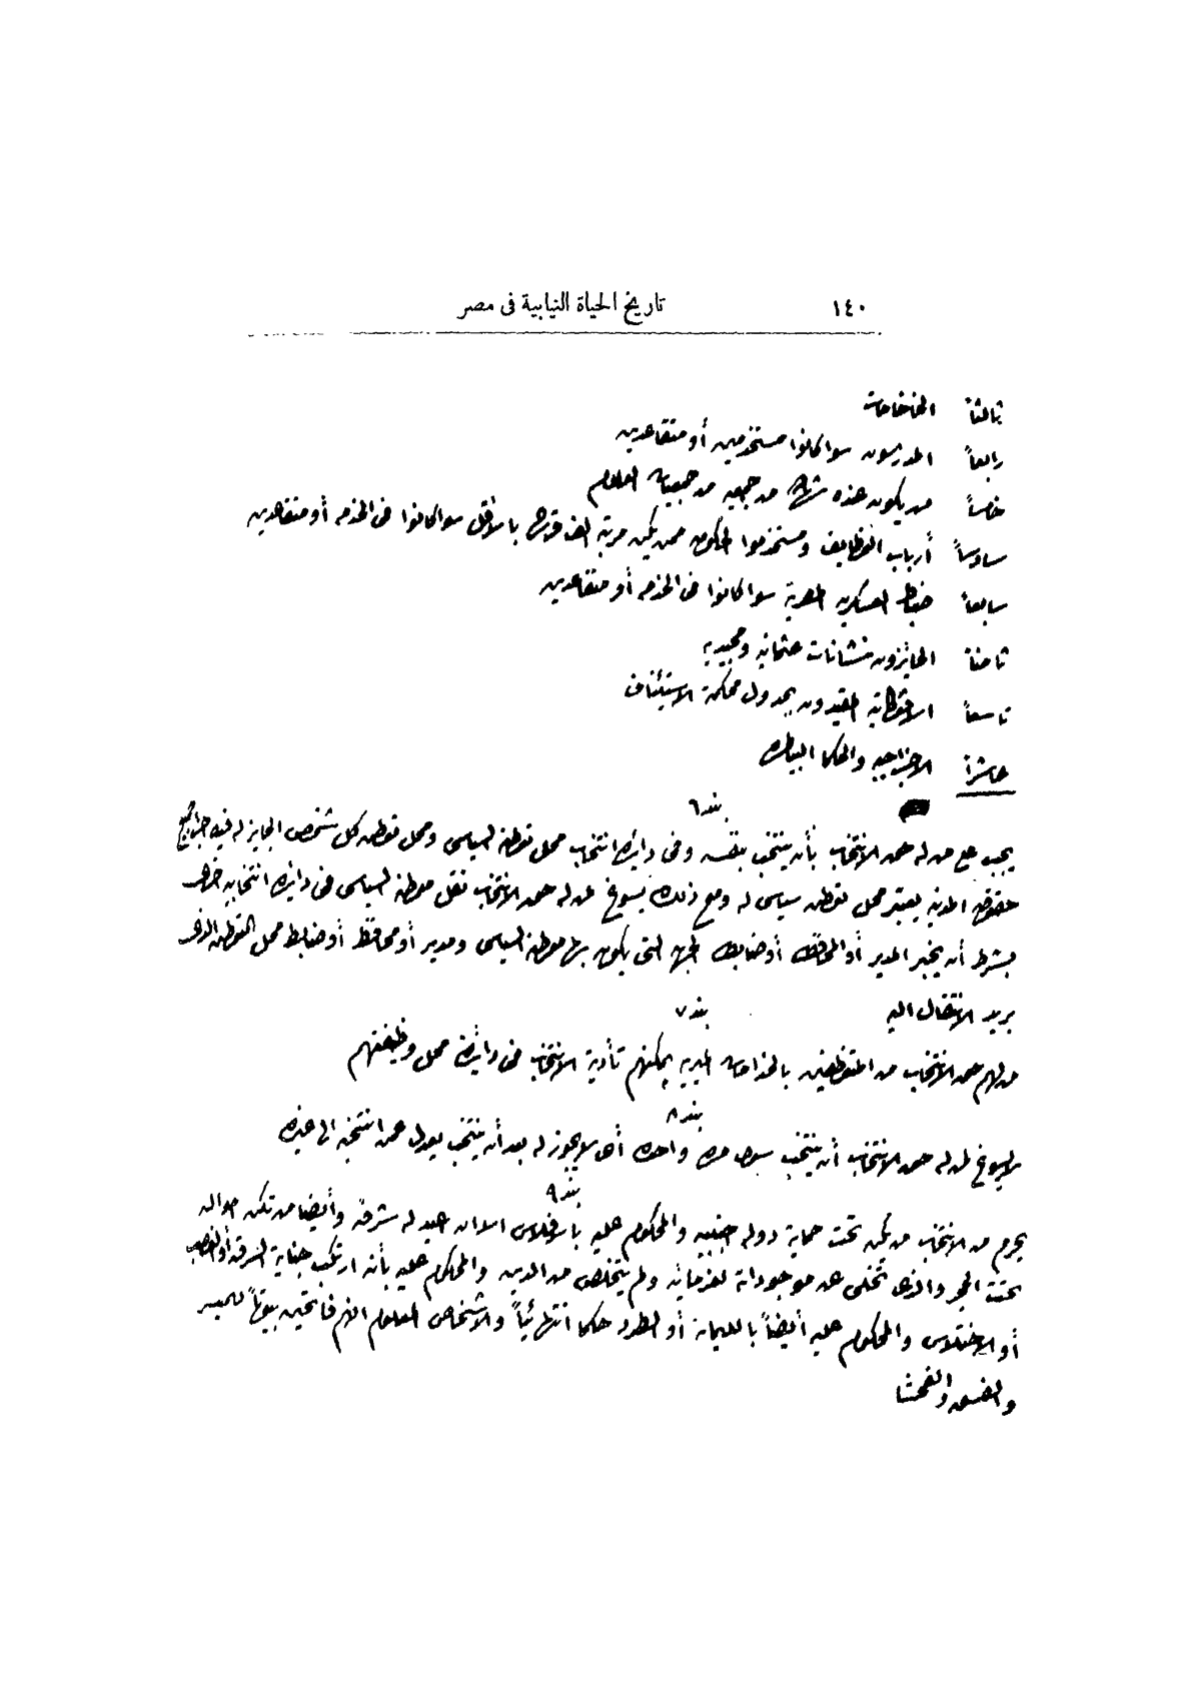 ١٤٠ تاريخ الحياة النيابية فى مصر
ثالثاً الحاخامات
رابعاً المدرسون سوا كانوا مستخدمين أو متقاعدين
خامساً من يكون عنده شهادة من جمعيه من جمعيات العلوم
سادساً أرباب الوظايف ومستخدموا الحكومه ممن يكون مرتبه الف قرش بالأقل سوا كانوا فى الخدمه أو متقاعدين
سابعاً ضباط العسكريه المصرية سوا كانوا فى الخدمه أو متقاعدين
ثامناً الحائزون نشانات عثمانيه ومجيديه
تاسعاً الافوكاتيه المقيدون بجدول محكمة الاستئناف
عاشراً الاجزاجيه والحكما البياطره
بند ٦
يجب على من له حق الانتخاب بأن ينتخب بنفسه وفى دائرة انتخاب محل توطنه السياسى ومحل توطن كل شخص الجايز له فيه اجرا جميع
حقوقه المدنيه يعتبر محل توطن سياسى له ومع ذلك يسوغ لمن له حق الانتخاب نقل موطنه السياسى فى دايرة انتخابيه اخرى
بشرط أن يخبر المدير أو المحافظ أو ضابط الجهة التى يكون بها موطنه السياسى ومدير أو محافظ أو ضابط محل التوطن الذى
يريد الانتقال اليه
بند ٧
من لهم حق الانتخاب من المتوظفين بالخدامات الميريه يمكنهم تأدية الانتخاب فى دائرة محل وظيفتهم
بند ٨
لا يسوغ لمن له حق الانتخاب أن ينتخب سوى مرة واحده أى لا يجوز له بعد أن ينتخب يعدل عمن انتخبه الى غيره
بند ٩
يحرم من الانتخاب من يكون تحت حماية دوله اجنبيه والمحكوم عليه بالافلاس الا ان اعيد له شرفه وأيضا من تكن امواله
تحت الحجر والذى تخلى عن موجوداته لغرمائه ولم يتخلص من الدين والمحكوم عليه بأنه ارتكب جناية السرقة أو النصب
أو الاختلاس والمحكوم عليه أيضاً بالليمان أو الطرد حكما انتهائياً والاشخاص المعلوم انهم فاتحين بيوتاً للميسر
والفسق والفحشا